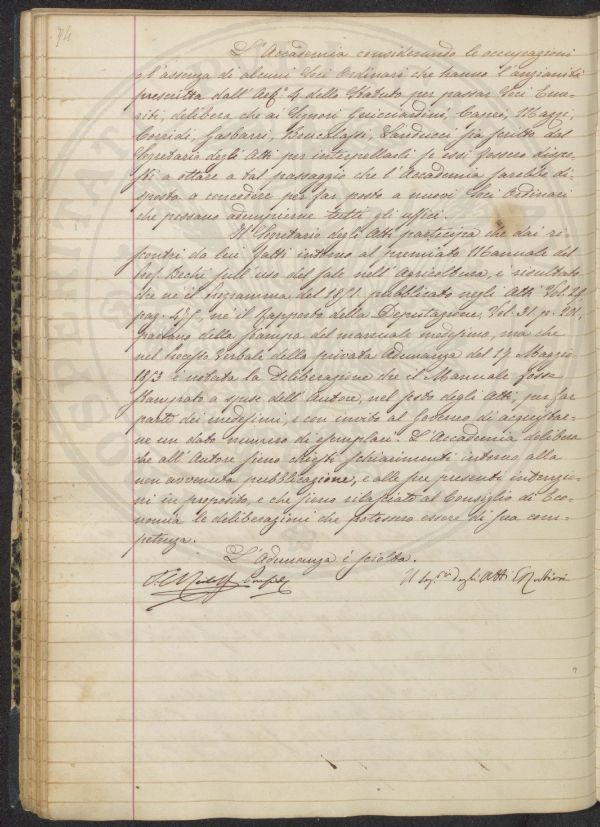 74
L'Accademia considerando le occupazioni
e l'assenza di alcuni Soci Ordinari che hanno l'anzianità
prescritta dall'Art.º 4 dello Statuto per passar Soci Eme-
riti, delibera che ai Signori Guicciardini, Capei, Mazzi,
Corridi, Gasbarri, Landucci sia scritto dal
Segretario degli Atti per interpellarli se essi fossero dispo-
sti a ottare a tal passaggio che l'Accademia sarebbe di-
sposta a concedere per far posto a nuovi Soci Ordinari
che possano adempierne tutti gli uffici.
Il Segretario degli Atti partecipa che dai ri-
scontri da lui fatti intorno al premiato Manuale del
Prof. Bechi sull'uso del sale nell'Agricoltura, è risultato
che nè il Programma del 1851 pubblicato negli Atti Vol. 29
pag. nè il Rapporto della Deputazione, Vol. 31. p. 201.
parlano della stampa del manuale medesimo, ma che
nel Processo Verbale della privata Adunanza del 17 Maggio
1853 è notata la Deliberazione che il Manuale fosse
stampato a spese dell'Autore, nel sesto degli Atti, per far
parte dei medesimi, e con invito al Governo di acquistar-
ne un dato numero di esemplari. L'Accademia delibera
che all'Autore sieno chiesti schiarimenti intorno alla
non avvenuta pubblicazione, e alle sue presenti intenzio-
ni in proposito, e che sieno rilasciate al Consiglio di Eco-
nomia le deliberazioni che potessero essere di sua com-
petenza.
L'Adunanza è sciolta.
Il Seg.rio degli Atti